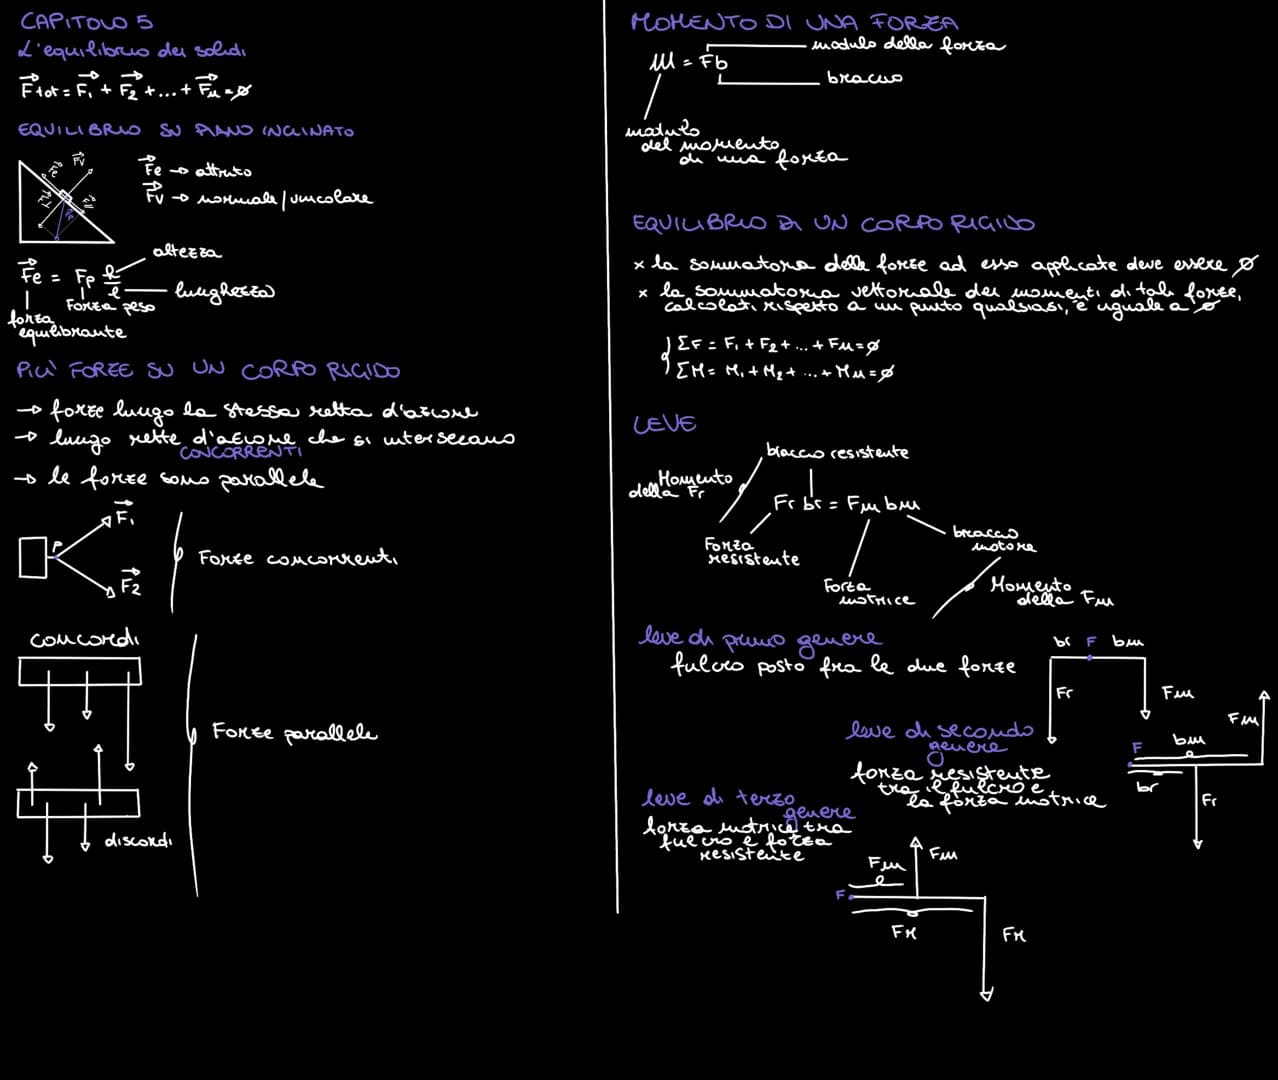 CAPITOLO 5
L'equilibrio dei solidi
F tot = F1 + F2 + ... + Fn = ∅
EQUILIBRIO SU PIANO INCLINATO
Fe → attrito
Fv → normale/vincolare
Fe
Fv
altezza
Fe = Fp h/l
lunghezza
Forza peso
forza
equilibrante
PIU' FORZE SU UN CORPO RIGIDO
→ forze lungo la stessa retta d'azione
→ lungo rette d'azione che si intersecano
CONCORRENTI
→ le forze sono parallele
P
F1
F2
Forze concorrenti
concordi
Forze parallele
discordi
MOMENTO DI UNA FORZA
modulo della forza
M = Fb
braccio
modulo
del momento
di una forza
EQUILIBRIO DI UN CORPO RIGIDO
x la sommatoria delle forze ad esso applicate deve essere ∅
x la sommatoria vettoriale dei momenti di tali forze,
calcolati rispetto a un punto qualsiasi, è uguale a ∅
ΣF = F1 + F2 + ... + Fn = ∅
ΣM = M1 + M2 + ... + Mn = ∅
LEVE
braccio resistente
Momento
della Fr
Fr br = Fm bm
Forza
resistente
braccio
motore
Forza
motrice
Momento
della Fm
leve di primo genere
fulcro posto fra le due forze
br F bm
Fr
Fm
leve di secondo
genere
forza resistente
tra il fulcro e
la forza motrice
F
bm
Fm
br
Fr
leve di terzo
genere
forza motrice tra
fulcro e forza
resistente
Fm
Fm
F
FR
FR